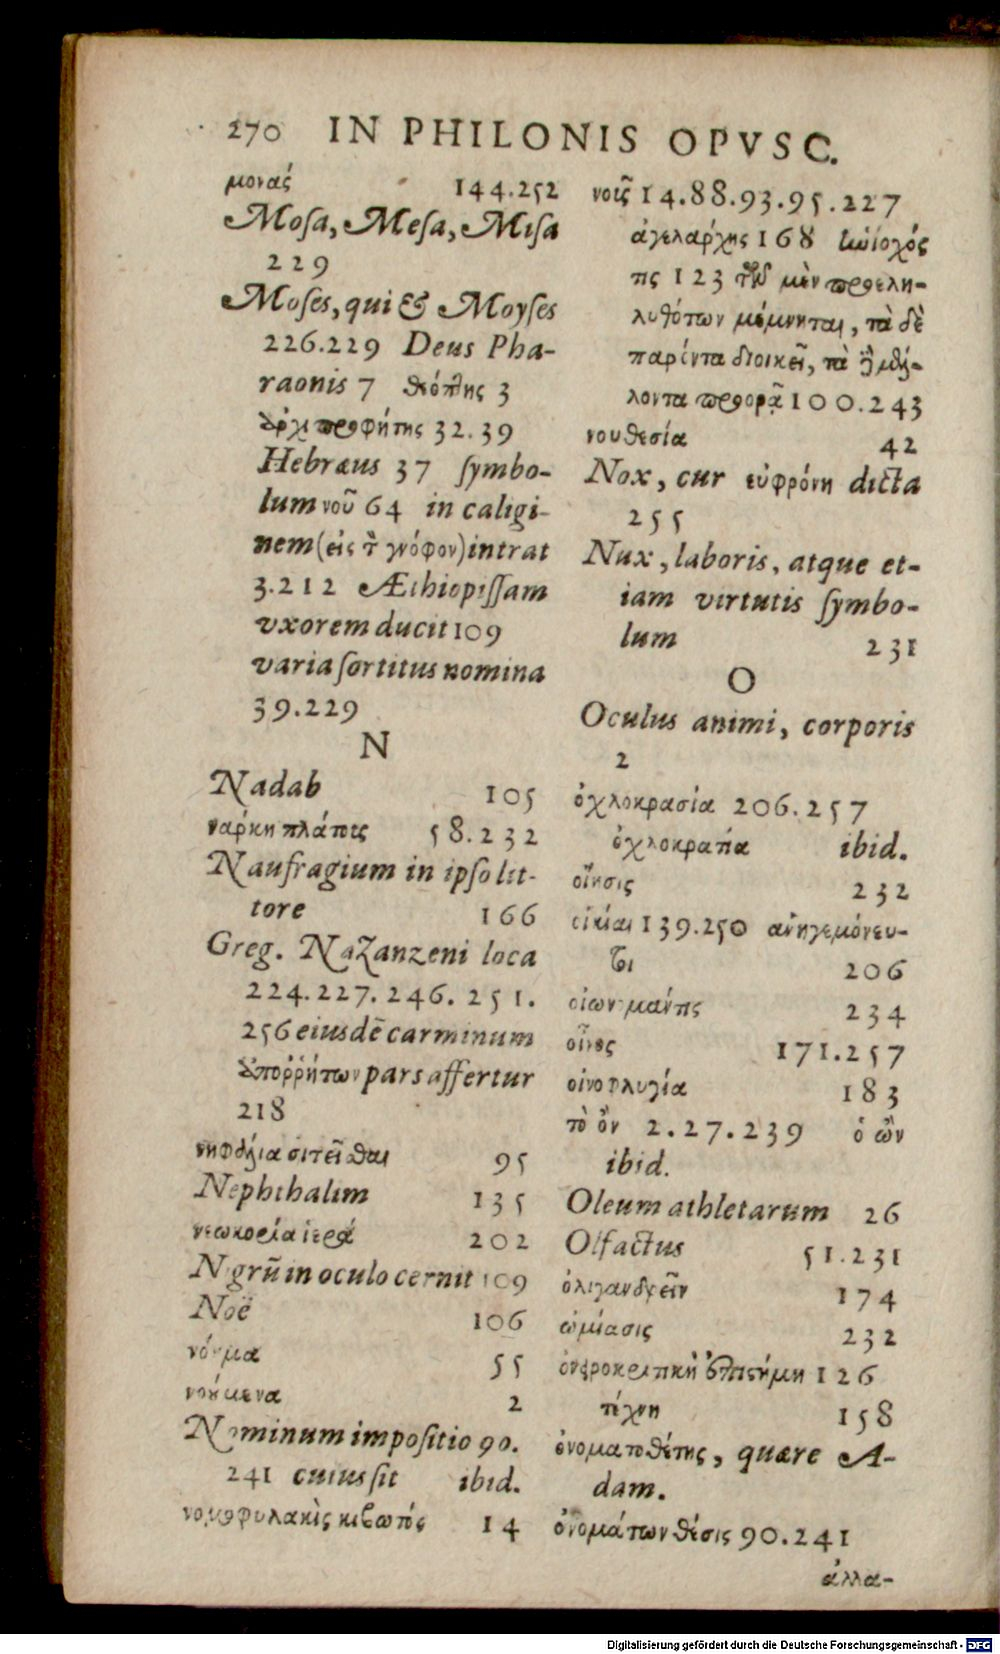 270 IN PHILONIS OPVSC.
μονάς 144.252
Moſa, Meſa, Miſa
229
Moſes, qui & Moyſes
226.229 Deus Pha-
raonis 7 θεόπλης 3
ἀρχιπροφήτης 32.39
Hebræus 37 ſymbo-
lum νοῦ 64 in caligi-
nem (εἰς τ̀ γνόφον) intrat
3.212 Æthiopiſſam
vxorem ducit 109
varia ſortitus nomina
39.229
N
Nadab 105
ναρκη πλάτους 58.232
Naufragium in ipſo lit-
tore 166
Greg. Nazanzeni loca
224.227.246.251.
256 eiusdē carminum
ἀπορρήτων pars affertur
218
νηφάλια σιτεῖσθαι 95
Nephthalim 135
νεωκορία ἱερά 202
Nigrū in oculo cernit 109
Noë 106
νόημα 55
νοούμενα 2
Nominum impoſitio 90.
241 cuius ſit ibid.
νομοφυλακὶς κιβωτός 14
νοῦς 14.88.93.95.227
ἀγελαρχης 168 ἡνίοχός
τις 123 τῶν μὲν προελη-
λυθότων μέμνηται, τὰ δὲ
παρόντα διοικεῖ, τὰ ἢ μέλ-
λοντα προορᾷ 100.243
νουθεσία 42
Nox, cur εὐφρόνη dicta
255
Nux, laboris, atque et-
iam virtutis ſymbo-
lum 231
O
Oculus animi, corporis
2
ὀχλοκρασία 206.257
ὀχλοκρατία ibid.
οἴησις 232
οἰκίαι 139.250 ἀνηγεμόνευ-
τοι 206
οἰωνομάντις 234
οἶνος 171.257
οἰνοφλυγία 183
τὸ ὂν 2.27.239 ὁ ὢν
ibid.
Oleum athletarum 26
Olfactus 51.231
ὀλιγανδρεῖν 174
ὠμίασις 232
ὀνειροκριτικὴ ἐπιστήμη 126
τέχνη 158
ὀνοματοθέτης, quære A-
dam.
ὀνομάτων θέσις 90.241
ἀλλα-
Digitalisierung gefördert durch die Deutsche Forschungsgemeinschaft - DFG